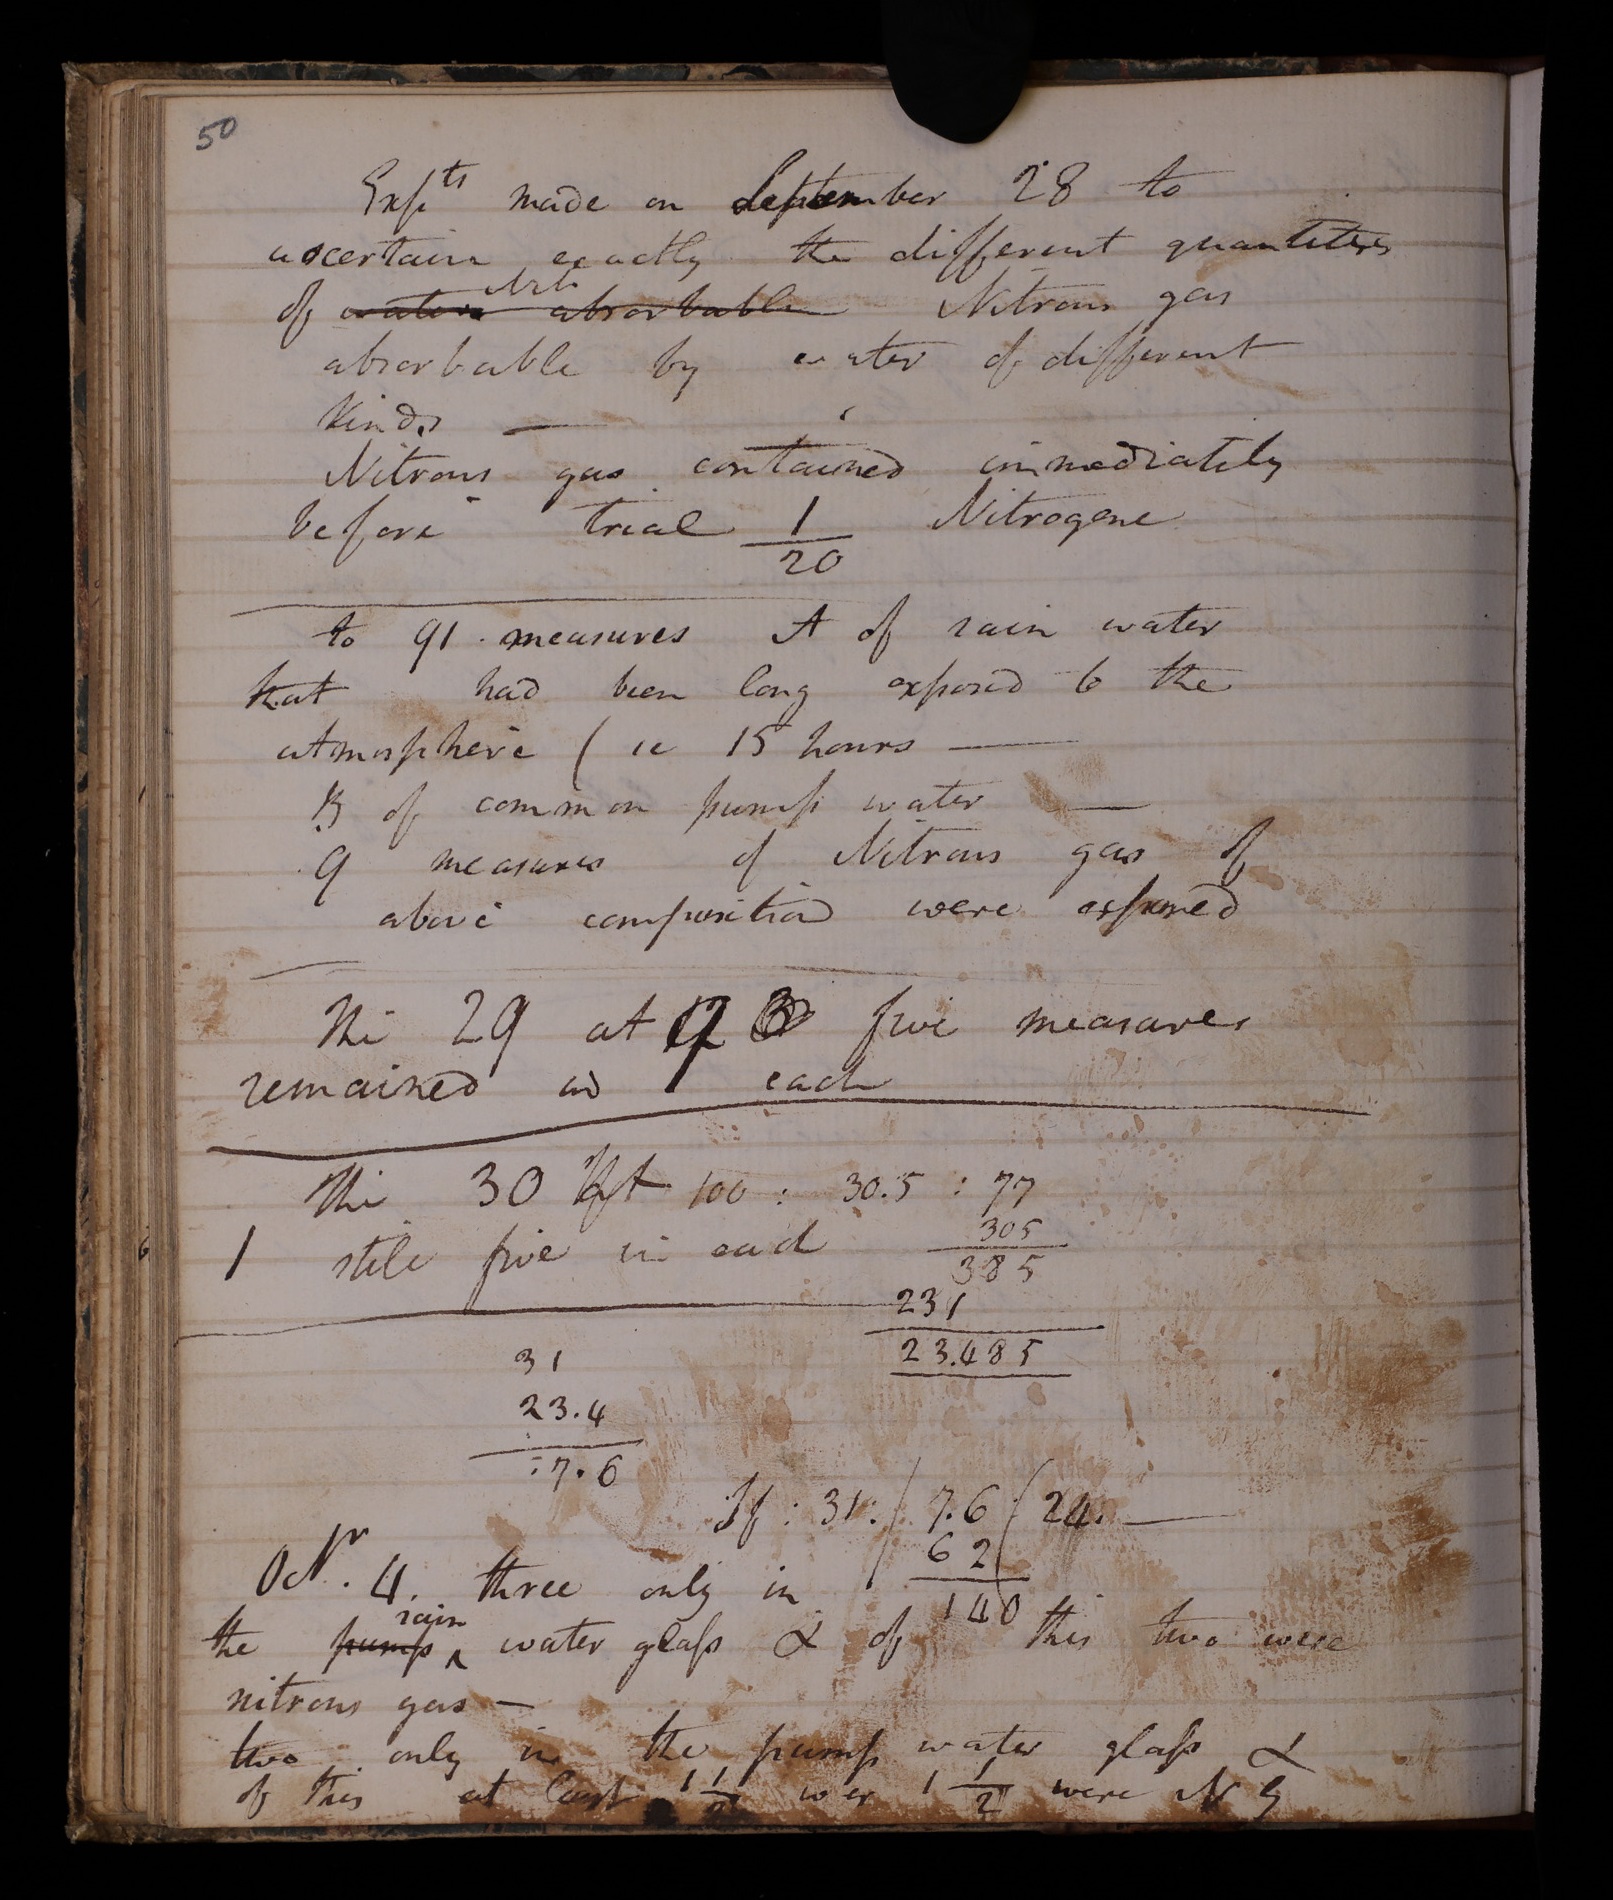 50
Expts made on September 28 to
ascertain exactly the different quantities
of water absorbable Nitrous gas
absorbable by water of different
Kinds —
Nitrous gas contained immediately
before trial 1/20 Nitrogene
to 91 measures A of rain water
that had been long exposed to the
atmosphere ( ie 15 hours —
B of common pump water —
9 measures of Nitrous gas of
above composition were exposed
The 29 at five measures
remained in each
The 30 100 : 30.5 : 77
305
1 still five in each
385
231
23.485
31
23.4
:7.6
If : 31 : / 7.6 ( 24. —
62
140
Octr. 4. three only in
rain
the pump ^ water glass & of this two were
nitrous gas —
two only in the pump water glass &
of this at least 1 1/2 wer 1 1/2 were N G